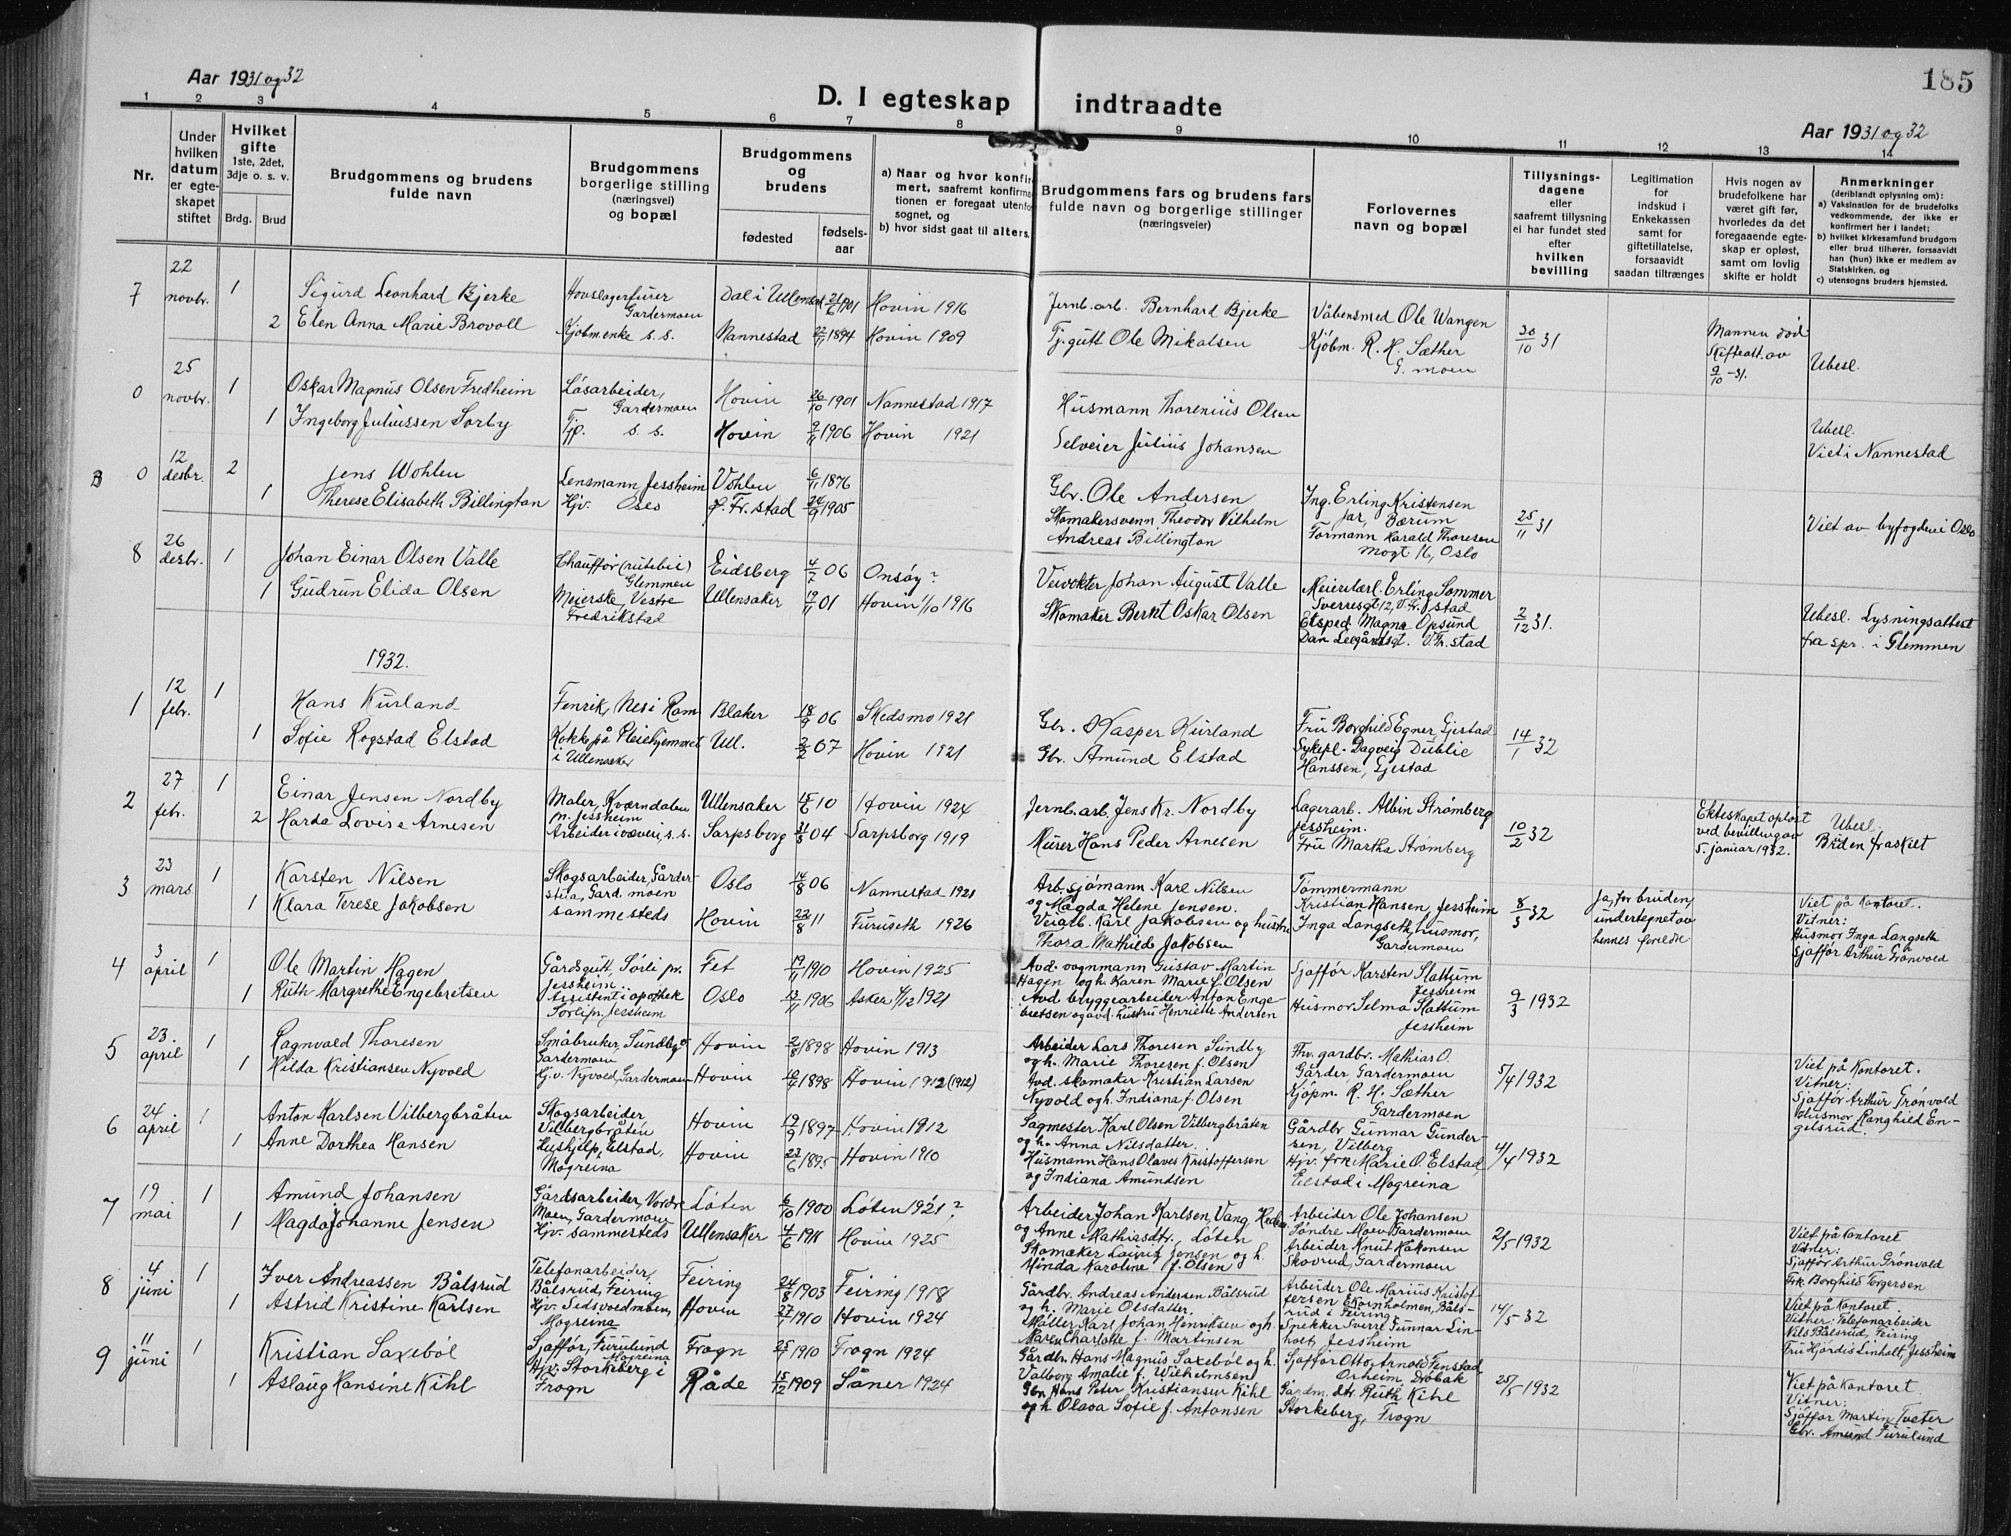 185
Aar 1931 og 32
D. I egteskap indtraadte
Aar 1931 og 32
1 2 3 4 5 6 7 8 9 10 11 12 13 14
Nr.
Under hvilken datum er egte-skapet stiftet
Hvilket gifte
1ste, 2det, 3dje o. s. v.
Brdg. Brud
Brudgommens og brudens fulde navn
Brudgommens borgerlige stilling (næringsvei) og bopæl
Brudgommens og brudens
fødested
fødsels-aar
a) Naar og hvor konfir-mert, saafremt konfirma-tionen er foregaat utenfor sognet, og
b) hvor sidst gaat til alters.
Brudgommens fars og brudens fars fulde navn og borgerlige stillinger (næringsveier)
Forlovernes navn og bopæl
Tillysnings-dagene eller saafremt tillysning ei har fundet sted efter hvilken bevilling
Legitimation for indskud i Enkekassen samt for giftetillatelse, forsaavidt saadan tiltrænges
Hvis nogen av brudefolkene har været gift før, hvorledes da det foregaaende egte-skap er opløst, samt om lovlig skifte er holdt
Anmerkninger
(deriblandt oplysning om):
a) Vaksination for de brudefolks vedkommende, der ikke er konfirmert her i landet;
b) hvilket kirkesamfund brudgom eller brud tilhører, forsaavidt han (hun) ikke er medlem av Statskirken, og
c) utensogns bruders hjemsted.
7 22 novbr. 1 Sigurd Leonhard Bjerke Hovslagerfurer Gardermoen Dal i Ullensak 21/6 1901 Hovin 1916 Jernb.arb. Bernhard Bjerke Våbensmed Ole Wangen
2 Elen Anna Marie Brovoll Kjøbm.enke s. s. Nannestad 22/11 1894 Hovin 1909 Tj.gutt Ole Mikalsen Kjøbm. R. H. Sæther G.moen 30/10 31 Mannen død Skifteatt. av 9/10 -31. Ubesl.
0 25 novbr. 1 Oskar Magnus Olsen Fredheim Løsarbeider, Gardermoen Hovin 26/10 1901 Nannestad 1917 Husmann Thorenius Olsen
1 Ingeborg Juliussen Sørby Tjp. s. s. Hovin 9/11 1906 Hovin 1921 Selveier Julius Johansen Ubesl. Viet i Nannestad
0 12 desbr. 2 Jens Wohlen Lensmann, Jessheim Vohlen 6/11 1876 Gbr. Ole Andersen Ing. Erling Kristensen Jar, Bærum
1 Therese Elisabeth Billington Hjv. Oslo Fr.stad 24/9 1905 Skomakersvenn Theodor Vilhelm Andreas Billington Formann Harald Thoresen Mogt 16, Oslo 25/11 31 Viet av byfogden i Oslo
8 26 desbr. 1 Johan Einar Olsen Valle Chauffør (rutebil) Glemmen Eidsberg 4/7 06 Onsøy? Veivokter Johan August Valle Meieribest. Erling Sommer Sverresgt 12, V. Fr.stad
1 Gudrun Elida Olsen Meierske Vestre Fredrikstad Ullensaker 19/11 01 Hovin 1/10 1916 Skomaker Bernt Oskar Olsen Eksped. Magna Opsund V. Fr.stad 2/12 31. Ubesl. Lysningsattest fra spr. i Glemmen
1932.
1 12 febr. 1 Hans Kurland Fenrik, Nes i Rom Blaker 18/9 06 Skedsmo 1921 Gbr. Kasper Kurland Fru Borghild Egner Gjestad
1 Sofie Rogstad Elstad Kokke på Pleiehjemmet i Ullensaker Ul. 2/2 07 Hovin 1921 Gbr. Amund Elstad Sykepl. Dagveig Dublie Hanssen, Gjestad 14/1 32
2 27 febr. 1 Einar Jensen Nordby Maler, Kværndalen pr. Jessheim Ullensaker 15/6 10 Hovin 1924 Jernb.arb. Jens Kr. Nordby Lagerarb. Albin Strømberg Jessheim.
2 Harda Lovise Arnesen Arbeider i væveri, s. s. Sarpsborg 31/8 04 Sarpsborg 1919 Murer Hans Peder Arnesen Fru Martha Strømberg 10/2 32 Ekteskapet opløst ved bevilling av 5. januar 1932. Ubesl. Bruden fraskilt
3 23 mars 1 Karsten Nilsen Skogsarbeider, Gardermoen Oslo 14/8 06 Nannestad 1921 Arb. sjømann Karl Nilsen og Magda Helene Jensen. Tømmermann Kristian Hansen, Jessheim
1 Klara Terese Jakobsen sammesteds Hovin 22/8 11 Furuseth 1926 Veiarb. Karl Jakobsen og hustru Thora Mathilde Jakobsen Inga Langseth, husmor, Gardermoen 8/3 32 Ja, for bruden, undertegnet av hennes foreldre Viet på kontoret. Vitner: Husmor Inga Langseth Sjåffør Arthur Grønvold
4 3 april 1 Ole Martin Hagen Gårdsgutt, Sørli pr. Jessheim Fet 19/11 1910 Hovin 1925 Avd. vognmann Gustav Martin Hagen og h. Karen Marie f. Olsen Sjåffør Karsten Slattum Jessheim
1 Ruth Margrethe Engebretsen Assistent i apothek Sørli pr. Jessheim Oslo 13/11 1906 Asker 4/12 1921 Avd. bryggearbeider Anton Engebretsen og avd. hustru Henriette Andersen Husmor Selma Slattum Jessheim 9/3 1932
5 23. april 1 Ragnvald Thoresen Småbruker, Sundby Gardermoen Hovin 2/8 1898 Hovin 1913 Arbeider Lars Thoresen Sundby og h. Marie Thoresen f. Olsen Fhv. gårdbr. Mathias O. Gårder Gardermoen
1 Hilda Kristiansen Nyvold Hj.v. Nyvold, Gardermoen Hovin 10/7 1898 Hovin 1912 (1912) Avd. skomaker Kristian Larsen Nyvold og h. Indiana f. Olsen Kjøpm. R. H. Sæther Gardermoen 5/4 1932 Viet på kontoret. Vitner: Sjåffør Arthur Grønvold Husmor Ranghild Engelsrud.
6 24 april 1 Anton Karlsen Vilbergbråten Skogsarbeider Vilbergbråten Hovin 19/9 1897 Hovin 1912 Sagmester Karl Olsen Vilbergbråten og h. Anna Nilsdatter. Gårdbr. Gunnar Gundersen, Vilberg
1 Anne Dorthea Hansen Hushjelp, Elstad, Mogreina Hovin 23/6 1895 Hovin 1910 Husmann Hans Olaves Kristoffersen og Indiana Amundsen Hjv. frk. Marie O. Elstad, Elstad i Mogreina 4/4 1932
7 19 mai 1 Amund Johansen Gårdsarbeider, Nordre Moen, Gardermoen Løten 6/10 1900 Løten 1921? Arbeider Johan Karlsen, Vang Hedm. og Anne Mathiasdtr., Løten Arbeider Ole Johansen Søndre Moen Gardermoen
1 Magda Johanne Jensen Hjv. sammesteds Ullensaker 4/6 1911 Hovin 1925 Skomaker Ludvig Jensen og h. Minda Karoline f. Olsen Arbeider Knut Håkensen Skovrud, Gardermoen 2/5 1932 Viet på kontoret Vitner: Sjåffør Arthur Grønvold Frk. Borghild Torgersen
8 4 juni 1 Iver Andreassen Bålsrud Telefonarbeider, Bålsrud, Feiring Feiring 24/8 1903 Feiring 1918 Gårdbr. Andreas Andersen Bålsrud og h. Marie Olsdatter. Arbeider Ole Marius Kristoffersen Ekornholmen, Bålsrud i Feiring
1 Astrid Kristine Karlsen Hjv. Sidsvoldmoen, Mogreina Hovin 27/7 1910 Hovin 1924 Møller Karl Johan Henriksen og h. Maren Charlotte f. Martinsen Spekker Sverre Gunnar Linholt, Jessheim 14/5 32 Viet på kontoret Vitner: Telefonarbeider Nils Bålsrud, Feiring Fru Hjørdis Linholt, Jessheim
9 11 juni 1 Kristian Saxebøl Sjåffør, Furulund Mogreina Frogn 25/1 1910 Frogn 1924 Gårdbr. Hans Magnus Saxebøl og h. Valborg Amalie f. Wilhelmsen Sjåffør Otto Arnold Finstad Orheim, Drøbak
1 Aslaug Hansine Kihl Hjv. Storkeberg i Frogn Råde 15/12 1909 Såner 1924 Gbr. Hans Peter Kristiansen Kihl og h. Olava Sofie f. Antonsen Gårdm. dtr. Ruth Kihl Storkeberg, Frogn 25/5 1932 Viet på kontoret. Vitner: Sjåffør Martin Tveter Gbr. Amund Furulund